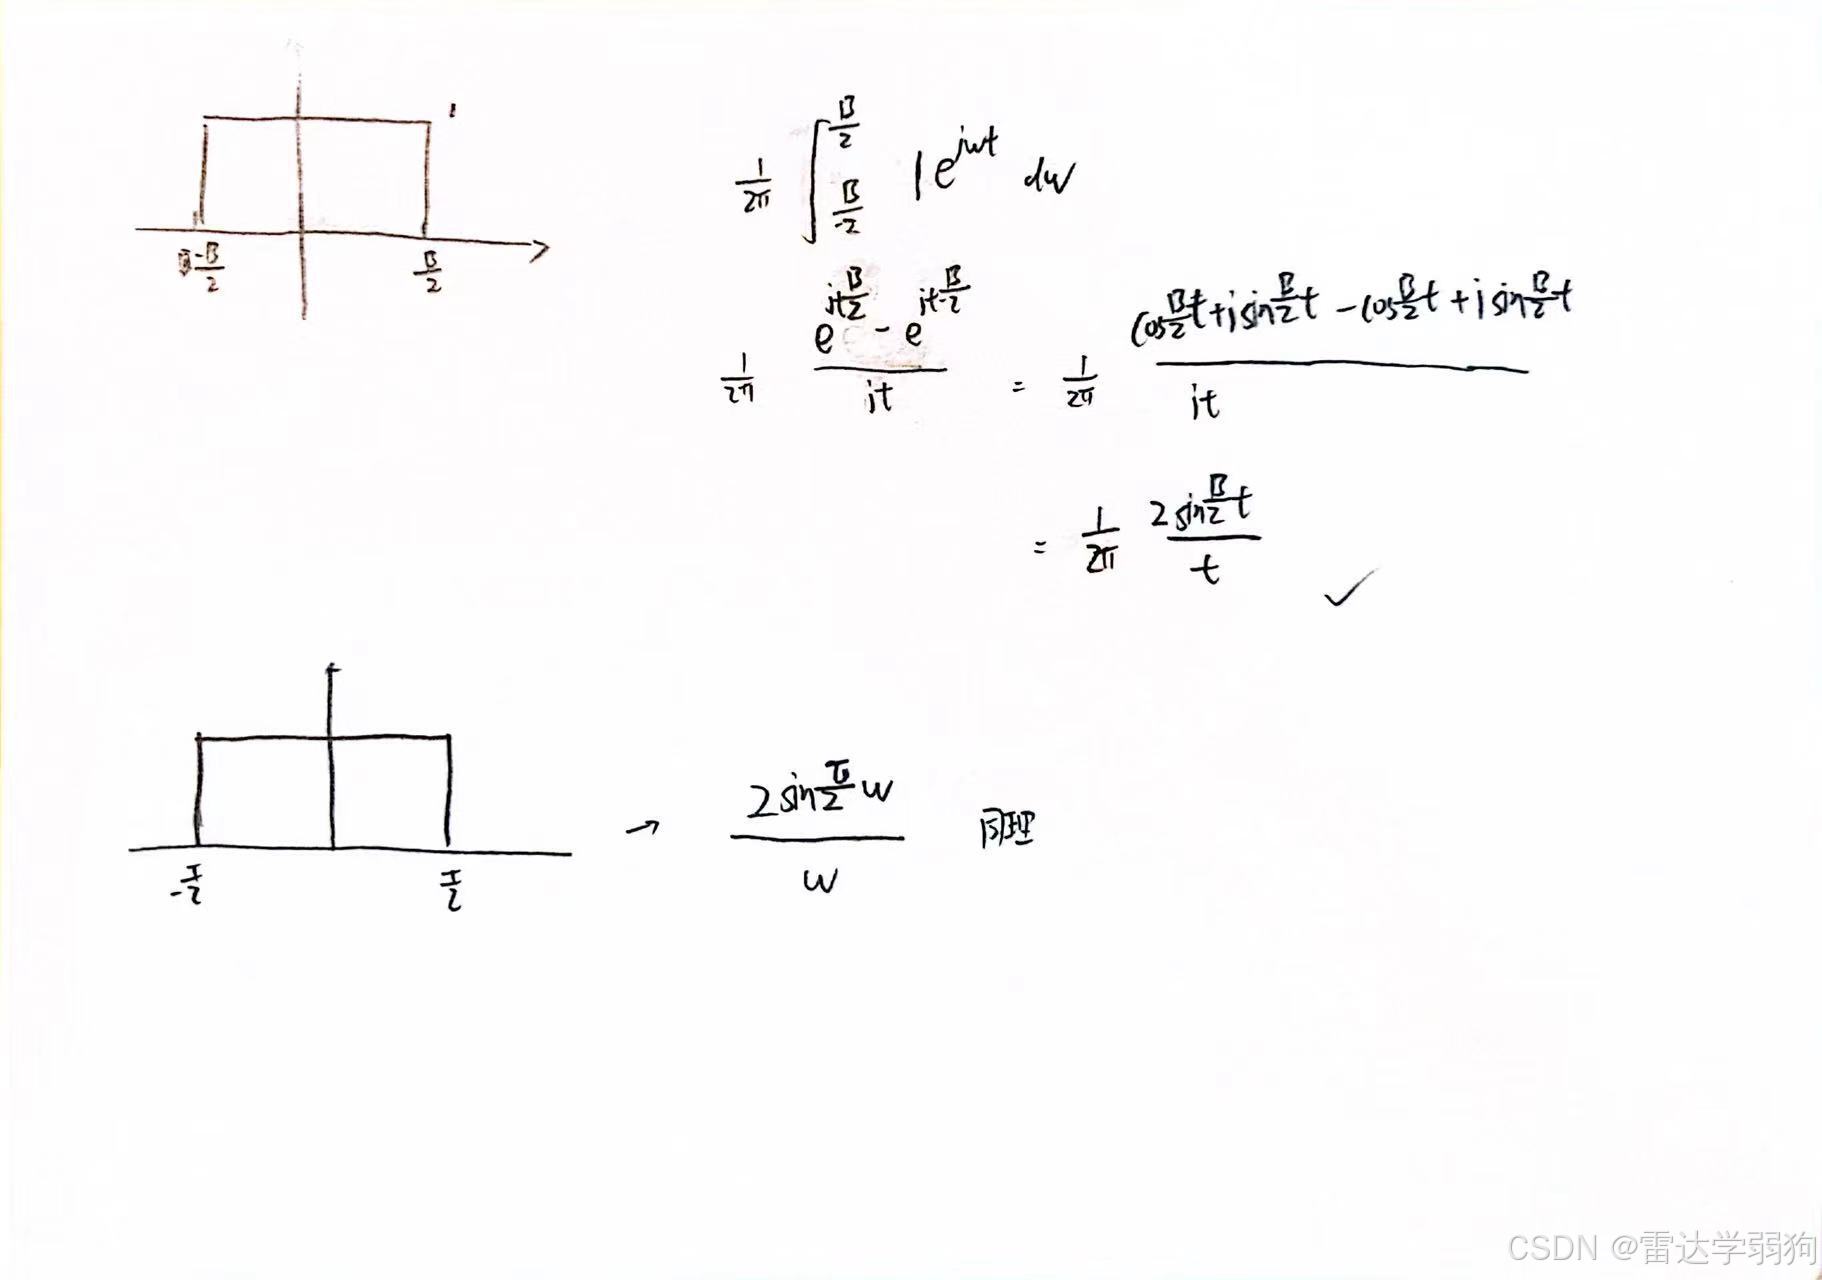 1
-B/2 B/2
1/2π ∫_{B/-2}^{B/2} 1 e^{jwt} dw
1/2π (e^{jt B/2} - e^{jt B/-2})/jt = 1/2π (cos B/2 t + j sin B/2 t - cos B/2 t + j sin B/2 t)/jt
= 1/2π (2 sin B/2 t)/t ✓
-π/2 π/2
→ (2 sin π/2 w)/w 同理
CSDN @雷达学弱狗